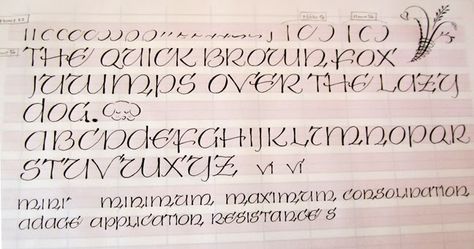 THE QUICK BROWN FOX
JUUMPS OVER THE LAZY
DOG.
ABCDEFGHIJKLMNOPQR
STUVWXYZ VI VI
mini minimum, maximum, consolidation
adage application, resistance s